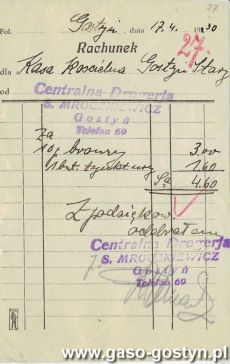 27
Fol. Gostyń, dnia 17.4. 1930
27
Rachunek
dla Kasa Kościelna Gostyń Stary
od Centralna Drogerja
S. MROCZKIEWICZ
Gostyń
Telefon 69
Za
3.00
1 but. 1.60
4.60
Z podziękow.
odebrałem
Centralna Drogerja
S. MROCZKIEWICZ
Gostyń
Telefon 69
www.gaso-gostyn.pl